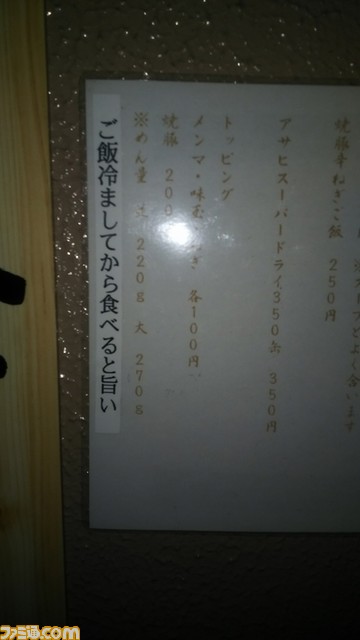 スープとよく合います
焼豚辛ねぎご飯 250円
アサヒスーパードライ350缶 350円
トッピング
メンマ・味玉 ねぎ 各100円
焼豚 200
※めん量 220g 大 270g
ご飯冷ましてから食べると旨い
ファミ通.com